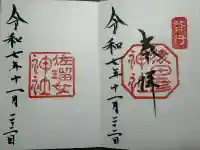 啓行
奉拝
令和七年十一月
神社
令和七年十一月
佐瑠女神社